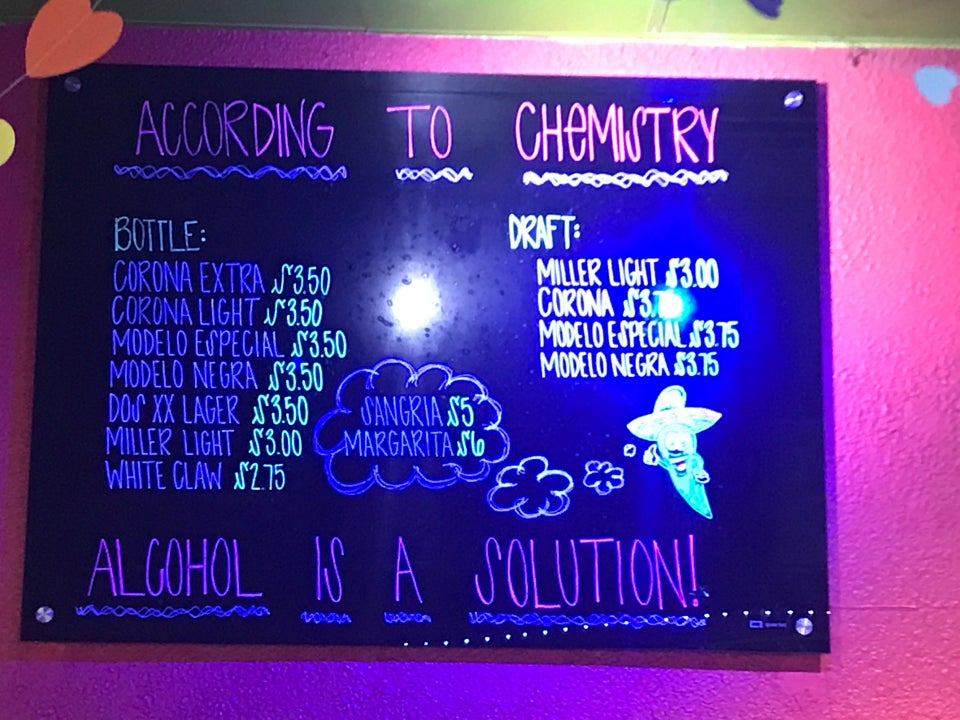 ACCORDING TO CHEMISTRY
BOTTLE:
CORONA EXTRA $3.50
CORONA LIGHT $3.50
MODELO ESPECIAL $3.50
MODELO NEGRA $3.50
DOS XX LAGER $3.50
MILLER LIGHT $3.00
WHITE CLAW $2.75
SANGRIA $5
MARGARITA $6
DRAFT:
MILLER LIGHT $3.00
CORONA
MODELO ESPECIAL $3.75
MODELO NEGRA $3.75
ALCOHOL IS A SOLUTION!